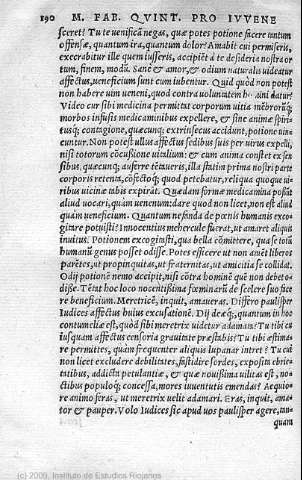 190 M. FAB. QVINT. PRO IVVENE
sceret? Tu te uenifica negas, quæ potes potione facere iuntum
offensæ, quantum ira, quantum dolor? Amabit cui permiseris,
execrabitur ille quem iusseris, accipiēt à te desideria nostra or
tum, finem, modū. Sanè & amor, & odium naturalis uideatur
affectus, ueneficium sunt cum iubentur. Quid quòd non potest
non habere uim ueneni, quod contra uoluntatem
Video cur sibi medicina permittat corporum uitia mēbrorumq́;
morbos infusis medicaminibus expellere, & sine animæ spiri-
tusq́; contagione, quæcunq; extrinsecus accidunt, potione uin-
cuntur. Non potest ullus affectus sedibus suis per uirus expelli,
nisi totorum cōcussione uitalium: & cum anima constet ex sen
sibus, quæcunq; auferre tētaueris, illa statim prima nostri parte
corporis retenta, obiectoq́; quod petebatur, reliqua quoque ui-
ribus uicinæ tabis expirat. Quædam formæ medicamina possūt
aliud uocari, quàm uenenum: dare quod non licet, non est aliud
quàm ueneficium. Quantum nefandæ de pœnis humanis exco-
gitare potuisti? Innocentius mehercule fueras, ut amaret aliquis
inuitus. Potionem excogitasti, qua bella cōmittere, qua se totū
humanū genus possit odisse. Potes efficere ut non amēt liberos
parētes, ut propinquitas, ut fraternitas, ut amicitia se collidat.
Odij potionē nemo accipit, nisi cōtra hominē quē non debet o-
disse. Tētat hoc loco nocentissima fœminarū de scelere suo face
re beneficium. Meretricē, inquit, amaueras. Differo paulisper
Iudices affectus huius excusationē. Dij deæq́;, quantum in hoc
contumeliæ est, quòd sibi meretrix uidetur adamari? Tu tibi cu
iusquam affectus censoria grauitate præstabis? Tu tibi æstima-
re permittes, quàm frequenter aliquis lupanar intret? Tu cui
non licet excludere debilitates, fastidire sordes, exposita ebrie-
tatibus, addicta petulantiæ, & quæ nouissima uilitas est, no-
ctibus populoq́; concessa, mores iuuentutis emendas? Aequio-
re animo feras, ut meretrix uelit adamari. Eras, inquit, ama-
tor & pauper. Volo Iudices sic apud uos paulisper agere, tan-
quam
(c) 2009, Instituto de Estudios Riojanos